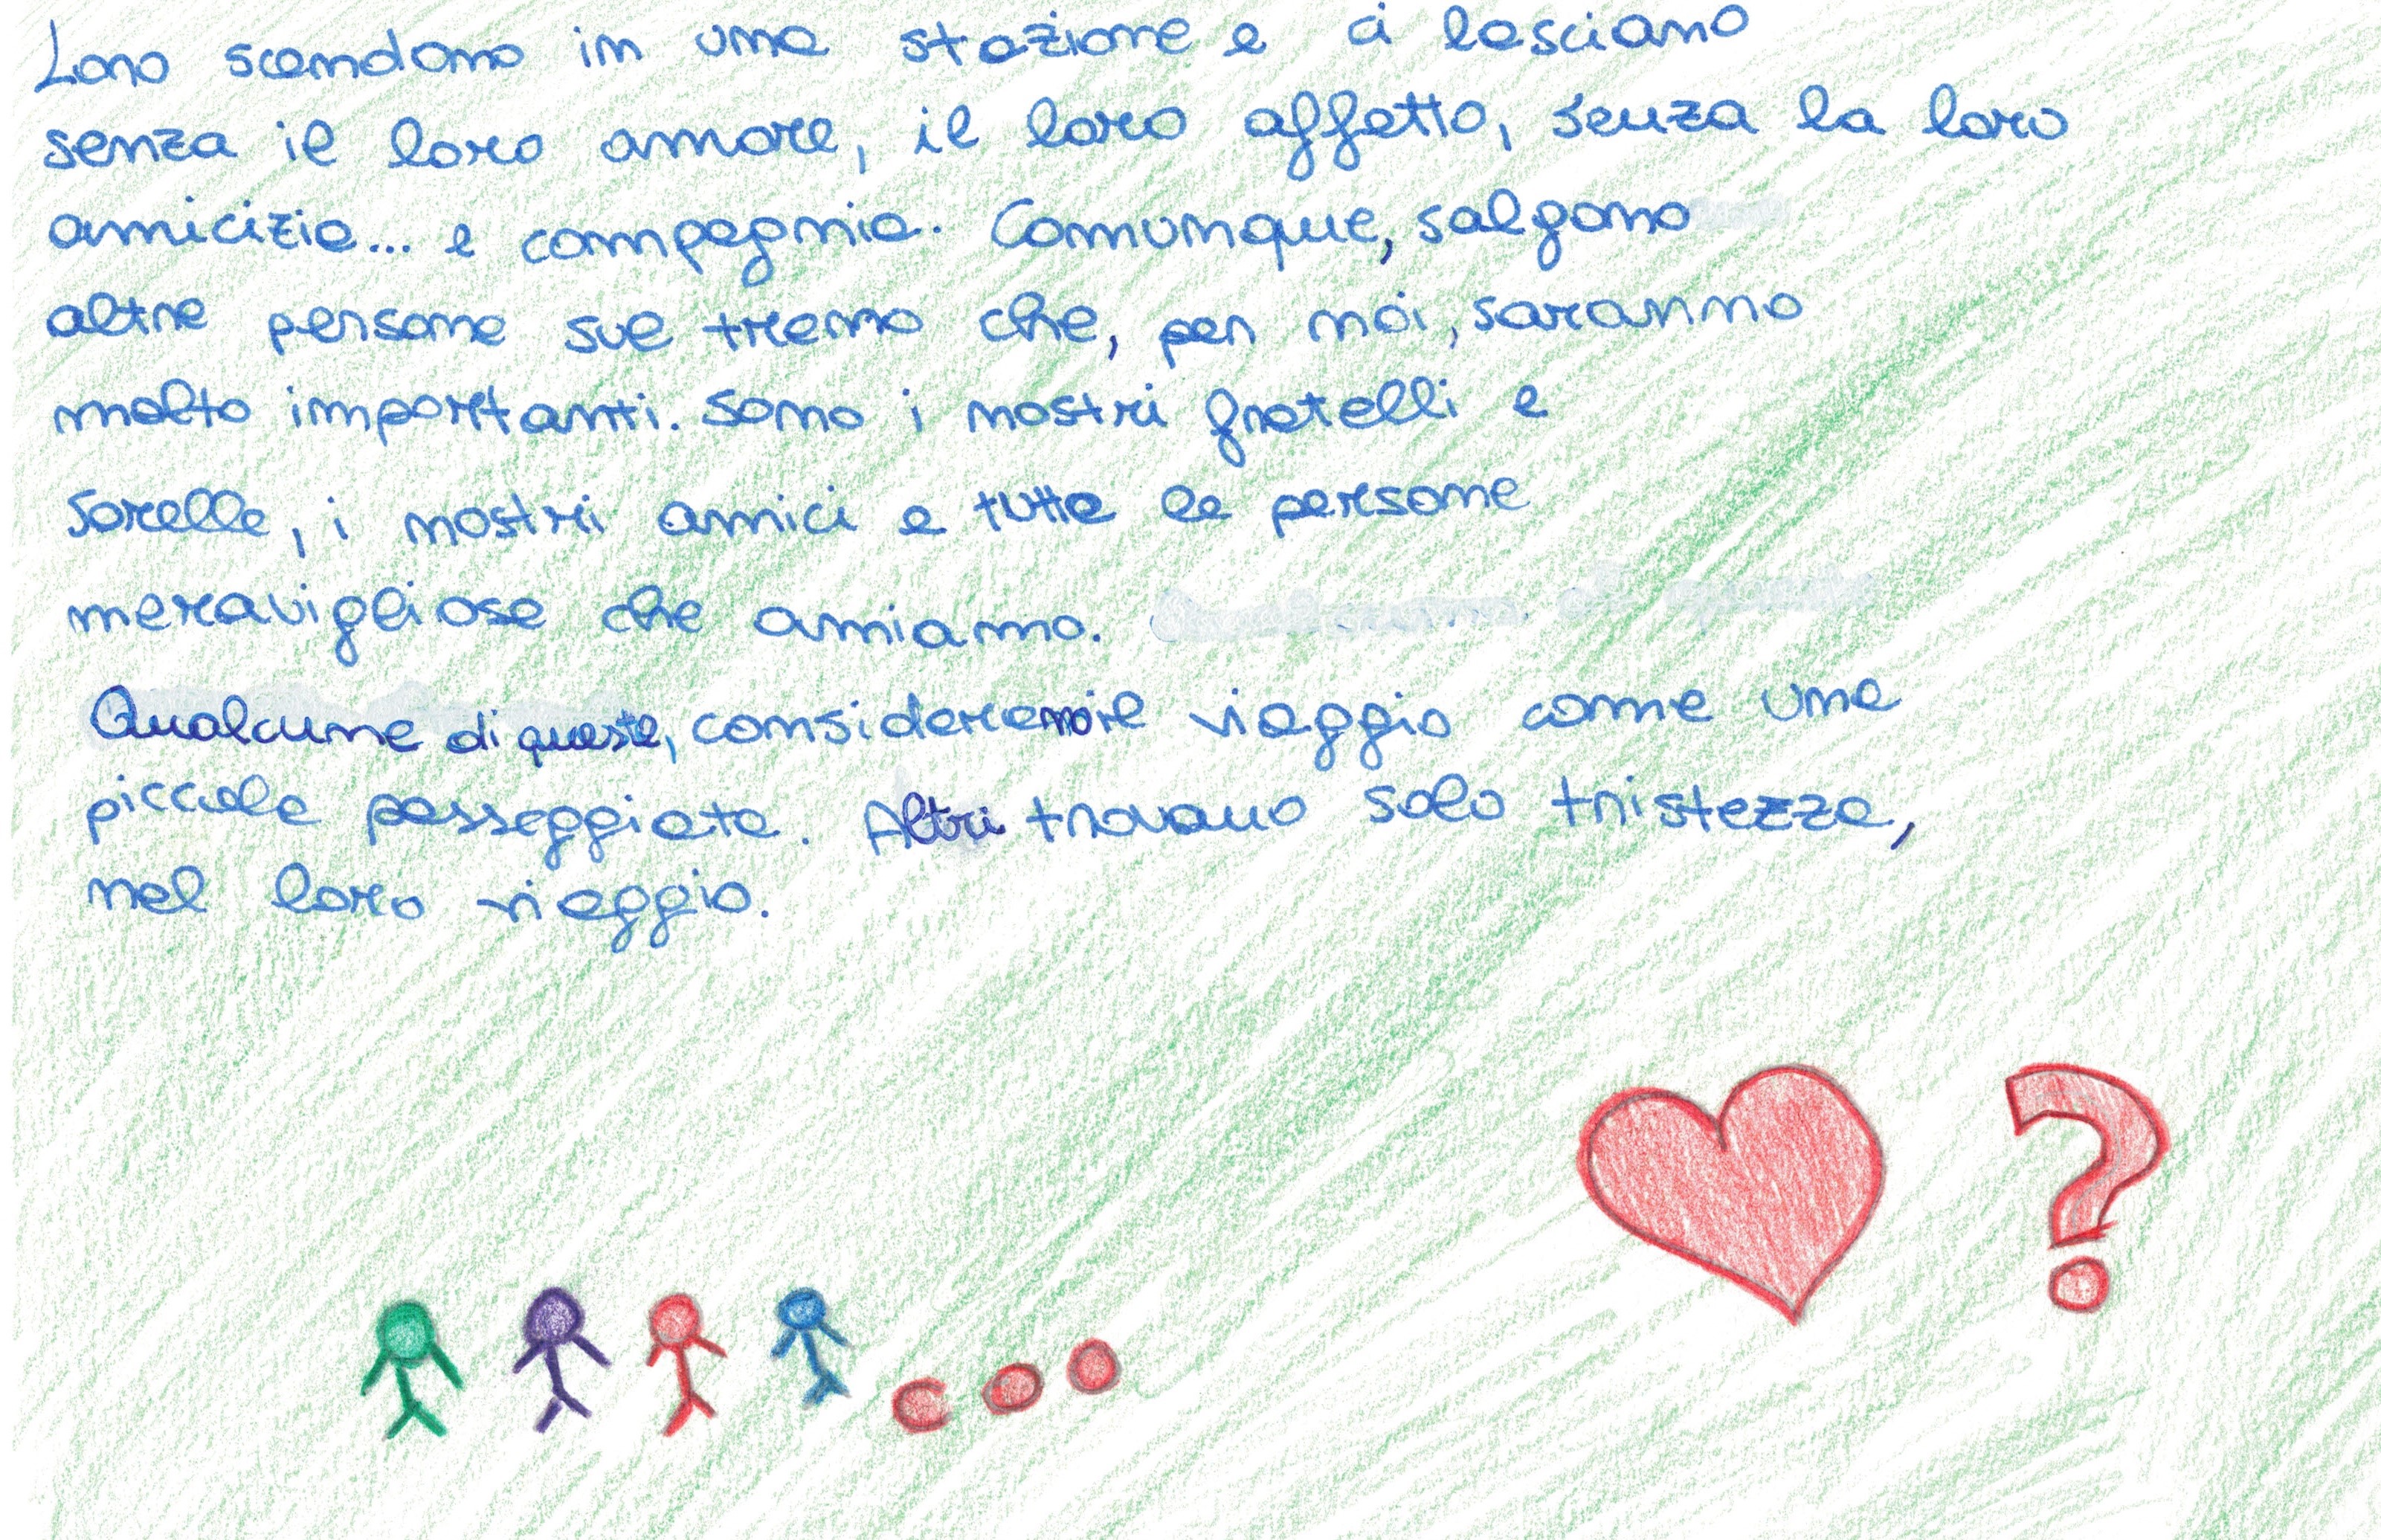 Loro scendono in una stazione e ci lasciano
senza il loro amore, il loro affetto, senza la loro
amicizia... e compagnia. Comunque, salgono
altre persone sul treno che, per noi, saranno
molto importanti. Sono i nostri fratelli e
sorelle, i nostri amici e tutte le persone
meravigliose che amiamo.
Qualcune di queste, considerano il viaggio come una
piccola passeggiata. Altri trovano solo tristezza,
nel loro viaggio.
?